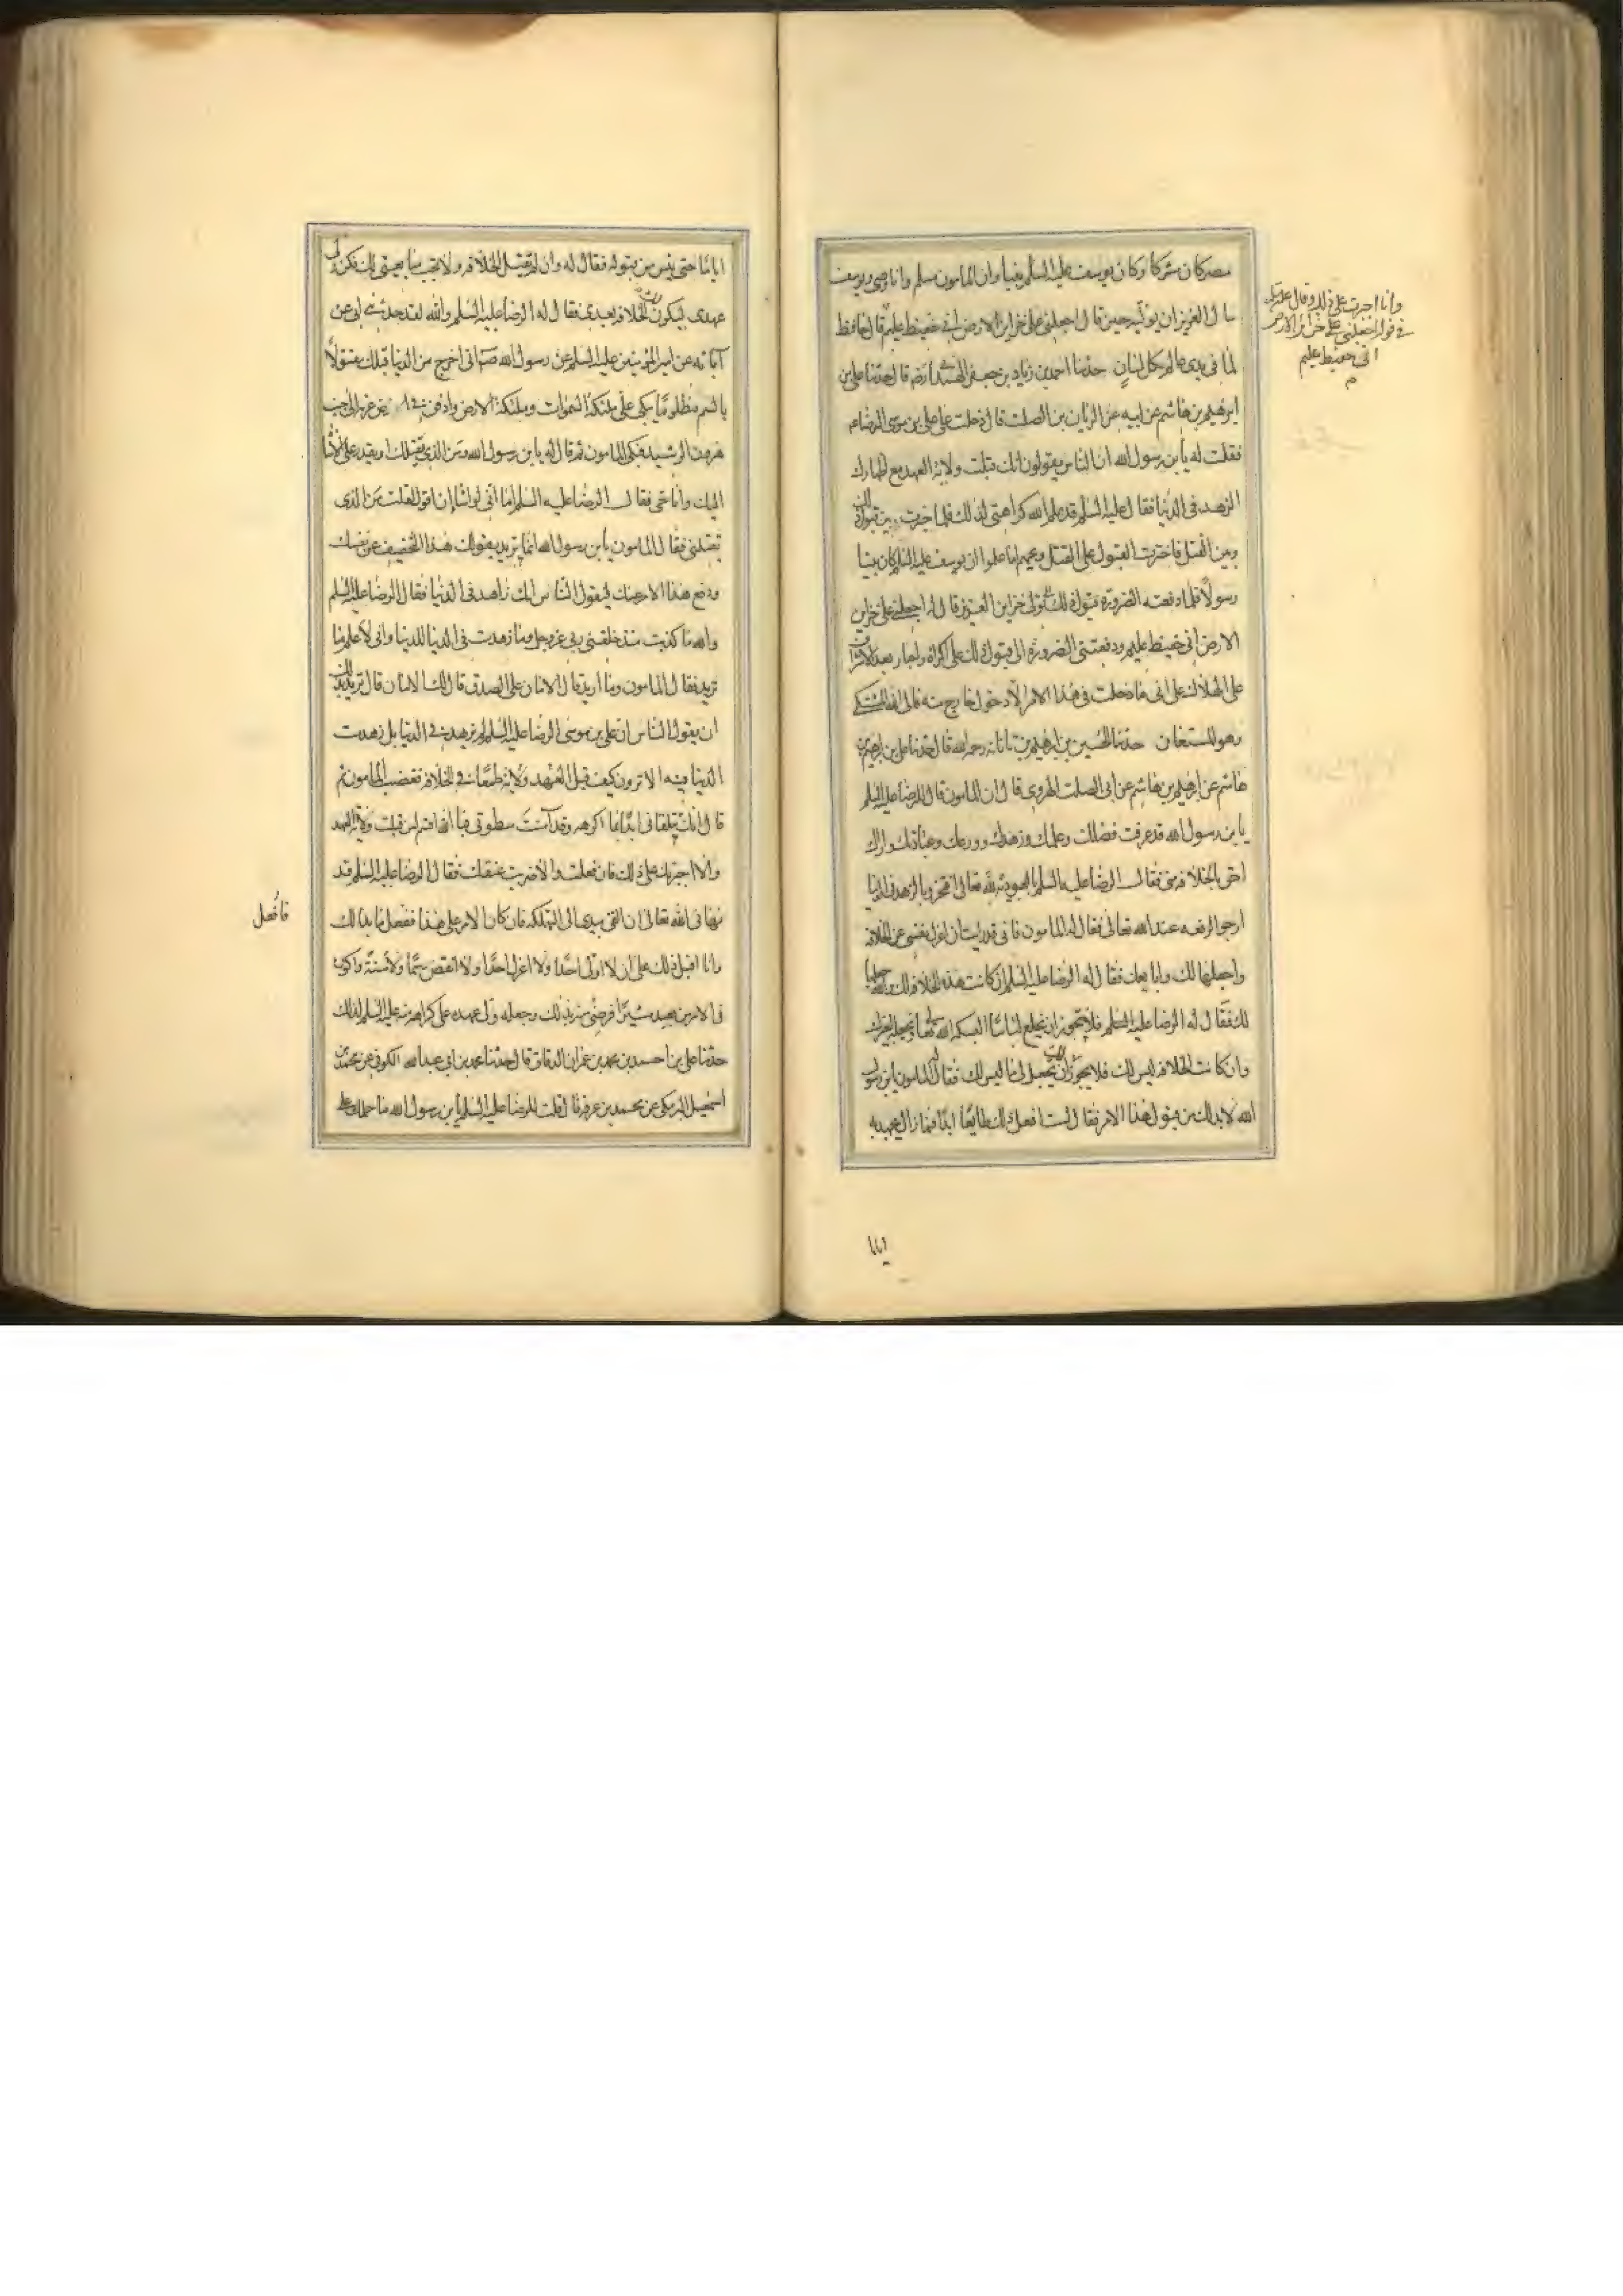 مصر كان مشركا وكان يوسف عليه السلم نبيا وان المامون مسلم وانا وصي ويوسف
سال العزيز ان يوليه حين قال اجعلني على خزاين الارض اني حفيظ عليم قال حافظ
لما في يدي عالم بكل لسان حدثنا احمد بن زياد بن جعفر الهمداني رضه قال حدثنا علي بن
ابرهيم بن هاشم عن ابيه عن الريان بن الصلت قال دخلت على علي بن موسى الرضا عم
فقلت له يا بن رسول الله ان الناس يقولون انك قبلت ولاية العهد مع اظهارك
الزهد في الدنيا فقال عليه السلم قد علم الله كراهتي لذلك فلما خيرت بين قبول ذلك
وبين القتل فاخترت القبول على القتل ويحهم اما علموا ان يوسف عليه السلم كان نبيا
رسولا فلما دفعته الضرورة بقبول ذلك تولى خزاين العزيز قال له اجعلني على خزاين
الارض اني حفيظ عليم ودفعتني الضرورة الى قبول ذلك على اكراه واجبار بعد الاشراف
على الهلاك على اني ما دخلت في هذا الامر الا دخول خارج منه فالى الله المشتكى
وهو المستعان حدثنا الحسين بن ابرهيم بن ناتانه رحمه الله قال حدثنا علي بن ابرهيم بن
هاشم عن ابرهيم بن هاشم عن ابي الصلت الهروي قال ان المامون قال للرضا عليه السلم
يا بن رسول الله قد عرفت فضلك وعلمك وزهدك وورعك وعبادتك واراك
احق بالخلافه مني فقال الرضا عليه السلم بالعبودية لله تعالى افتخر وبالزهد في الدنيا
ارجو الرفعه عند الله تعالى فقال له المامون فاني قد رايت ان اعزل نفسي عن الخلافه
واجعلها لك وابايعك فقال له الرضا عليه السلم ان كانت هذه الخلافه لك والله جعلها
لك فقال له الرضا عليه السلم فلا يجوز ان تخلع لباسا البسكه الله تعالى وتجعله لغيرك
وان كانت الخلافه ليس لك فلا يجوز لك ان تجعل لي ما ليس لك فقال له المامون يا بن رسول
الله لا بد لك من قبول هذا الامر فقال لست افعل ذلك طايعا ابدا فما زال يجهد به
وانا اجبرت على ذلك وقال عليه السلم
في قوله اجعلني على خزاين الارض
اني حفيظ عليم
م
اياما
اياما حتى يئس من قبوله فقال له وان لم تقبل الخلافه ولا تجب مبايعتي لك فكن ولي
عهدي ليكون لك الخلافه بعدي فقال له الرضا عليه السلم والله لقد حدثني ابي عن
آبائه عن امير المؤمنين عليه السلم عن رسول الله ص اني اخرج من الدنيا قبلك مقتولا
بالسم مظلوما يبكي علي ملئكة السموات وملئكة الارض وادفن في ارض غربة الى جنب
هرون الرشيد فبكى المامون ثم قال له يا بن رسول الله ومن الذي يقتلك او يقدر على الاساءة
اليك وانا حي فقال الرضا عليه السلم اما اني لو اشا ان اقول لقلت من الذي
يقتلني فقال المامون يا بن رسول الله انما تريد بقولك هذا التخفيف عن نفسك
ودفع هذا الامر عنك ليقول الناس انك زاهد في الدنيا فقال الرضا عليه السلم
والله ما كذبت منذ خلقني ربي عز وجل وما زهدت في الدنيا للدنيا واني لاعلم ما
تريد فقال المامون وما اريد قال الامان على الصدق قال لك الامان قال تريد بذلك
ان يقول الناس ان علي بن موسى الرضا عليه السلم لم يزهد في الدنيا بل زهدت
الدنيا فيه الا ترون كيف قبل العهد ولاية طمعا في الخلافه فغضب المامون ثم
قال انك تتلقاني ابدا بما اكرهه وقد آمنت سطوتي فبالله اقسم لئن قبلت ولاية العهد
والا اجبرتك على ذلك فان فعلت والا ضربت عنقك فقال الرضا عليه السلم قد
نهاني الله تعالى ان القي بيدي الى التهلكه فان كان الامر على هذا ففعل ما بدا لك
وانا اقبل ذلك على ان لا اولي احدا ولا اعزل احدا ولا انقض رسما ولا سنة واكون
في الامر من بعيد مشيرا فرضي منه بذلك وجعله ولي عهده على كراهة منه عليه السلم لذلك
حدثنا علي بن احمد بن محمد بن عمران الدقاق قال حدثنا محمد بن ابي عبد الله الكوفي عن محمد بن
اسمعيل البرمكي عن محمد بن عرفه قال قلت للرضا عليه السلم يا بن رسول الله ما حملك على
فافعل